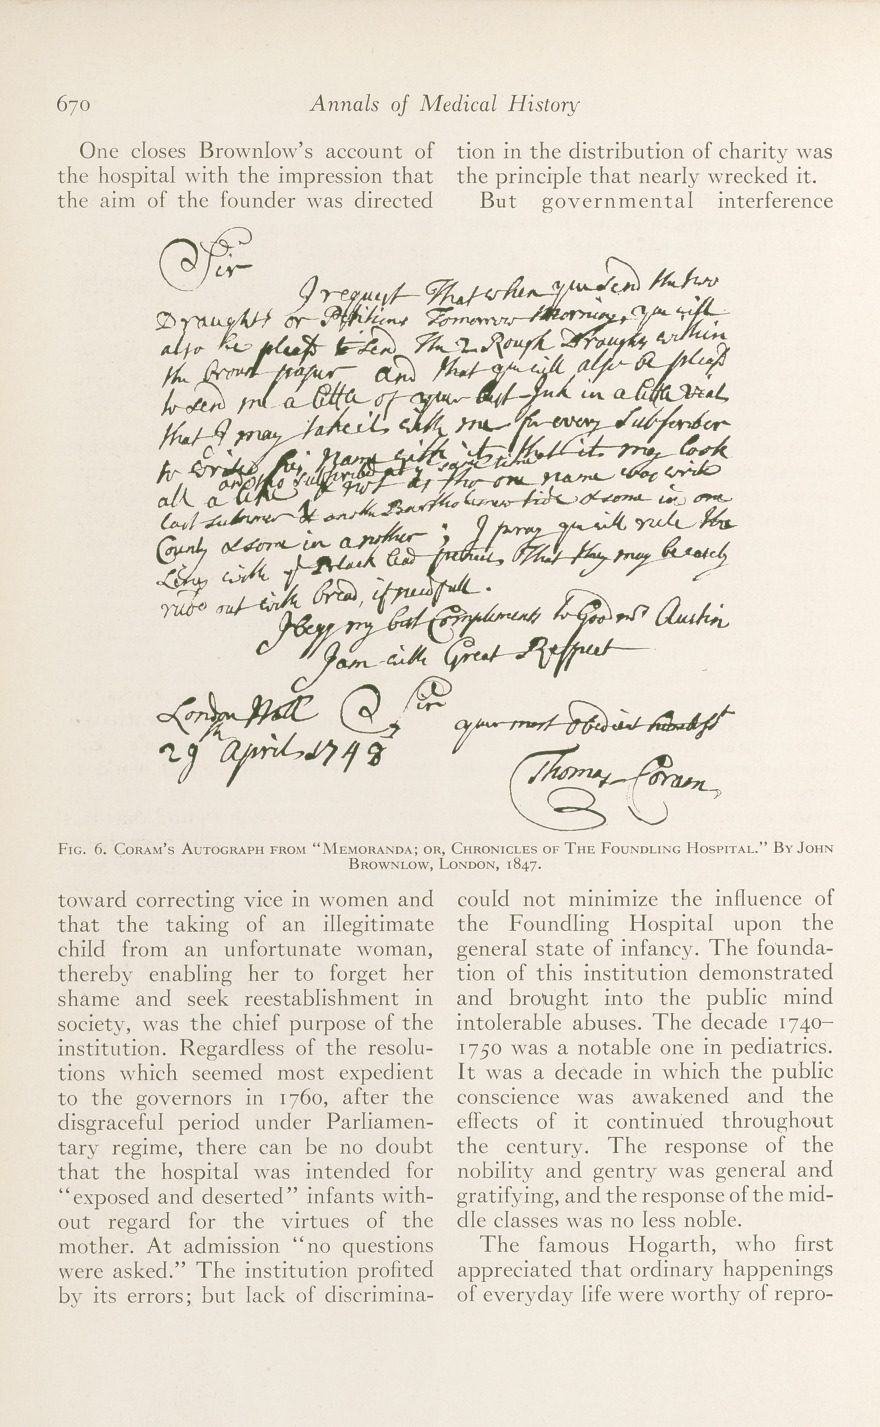 670
Annals of Medical History
One closes Brownlow's account of
the hospital with the impression that
the aim of the founder was directed
tion in the distribution of charity was
the principle that nearly wrecked it.
But governmental interference
Sir
I request That when you send the two
Draughts or Petitions Tomorrow Morning, you will
also be pleasd to send The 2 Rough Draughts within
the brown paper and that you will also be pleasd
to send me a little of your best Ink in a little Vial
that I may take it with me for every Subscriber
to write his Name with it that it may look
all a like & not as tho one name was writ
and tho subscribed at y same time
last summer & another Bartholomew tide & some in one
County & some in another; I pray you will rule the
Lines with y Black lead pencil, That they may be easely
rubd out with bread, if needfull.
I begg my best Compliments to Good Mrs Austin
I am with Great Respect
London Wall
Sir
your most obedient
29th April 1748
Thomas Coram
Fig. 6. Coram's Autograph from "Memoranda; or, Chronicles of The Foundling Hospital." By John
Brownlow, London, 1847.
toward correcting vice in women and
that the taking of an illegitimate
child from an unfortunate woman,
thereby enabling her to forget her
shame and seek reestablishment in
society, was the chief purpose of the
institution. Regardless of the resolu-
tions which seemed most expedient
to the governors in 1760, after the
disgraceful period under Parliamen-
tary regime, there can be no doubt
that the hospital was intended for
"exposed and deserted" infants with-
out regard for the virtues of the
mother. At admission "no questions
were asked." The institution profited
by its errors; but lack of discrimina-
could not minimize the influence of
the Foundling Hospital upon the
general state of infancy. The founda-
tion of this institution demonstrated
and brought into the public mind
intolerable abuses. The decade 1740–
1750 was a notable one in pediatrics.
It was a decade in which the public
conscience was awakened and the
effects of it continued throughout
the century. The response of the
nobility and gentry was general and
gratifying, and the response of the mid-
dle classes was no less noble.
The famous Hogarth, who first
appreciated that ordinary happenings
of everyday life were worthy of repro-